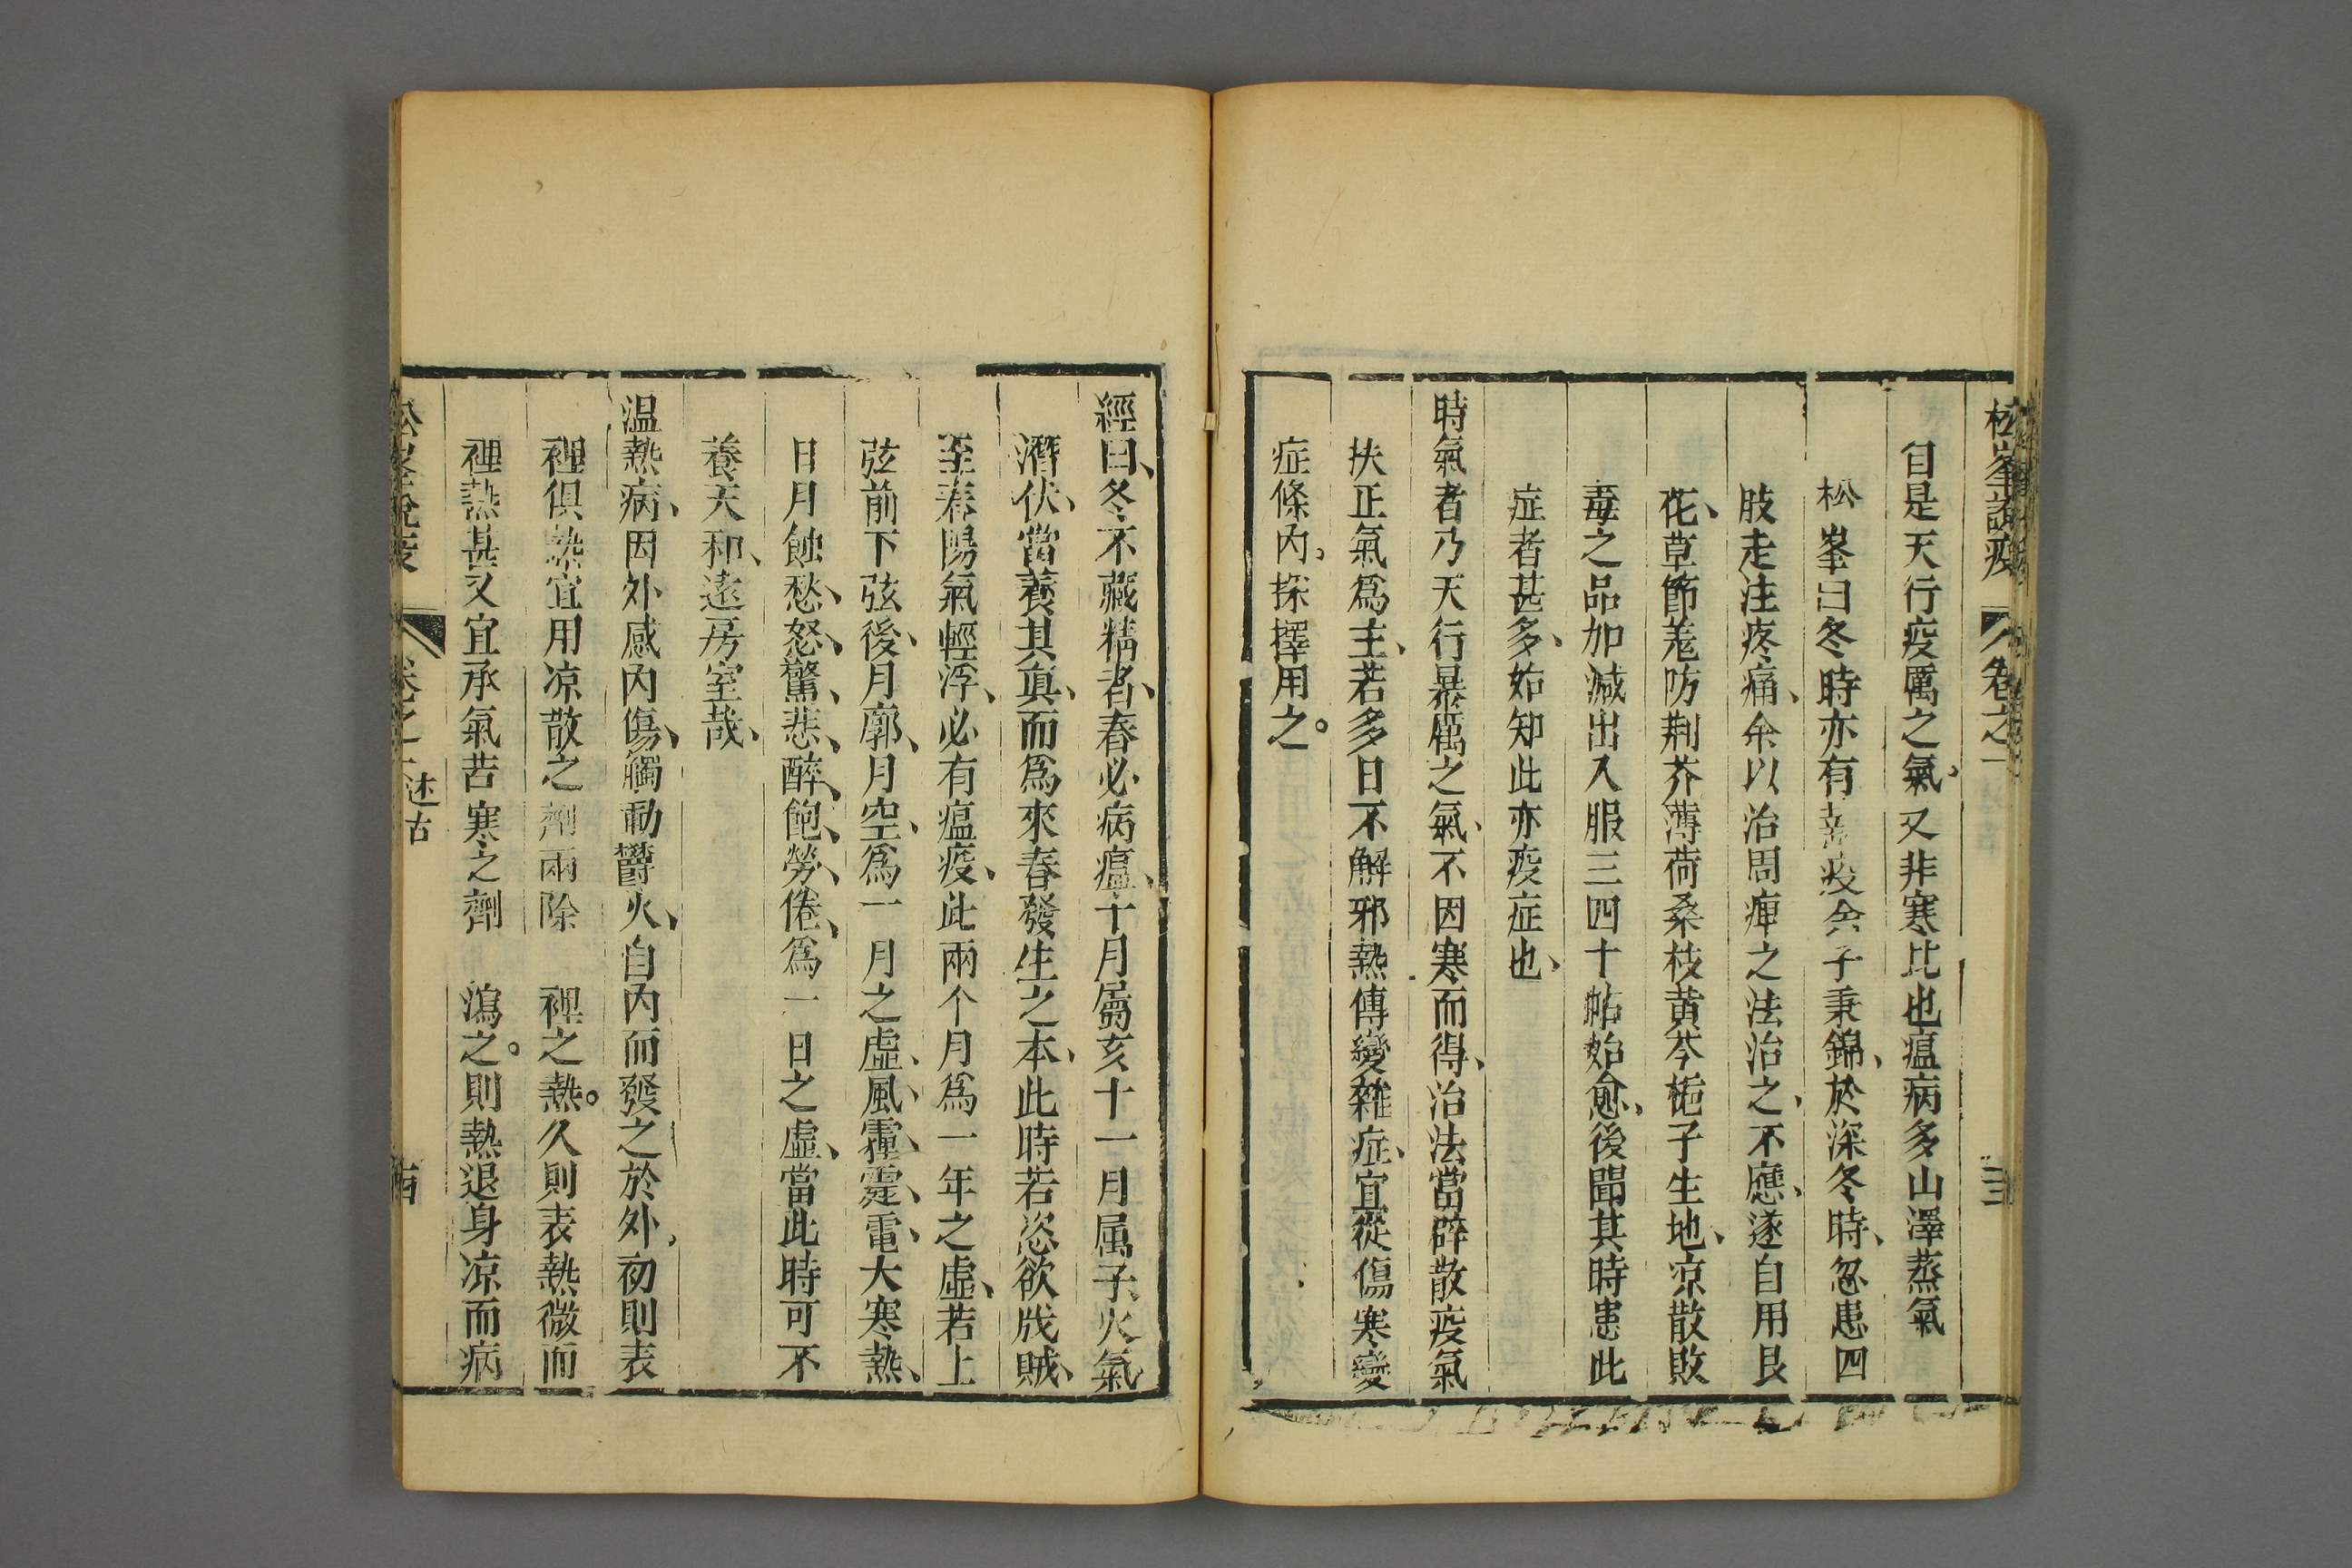 松峯說疫 卷之一
自是天行疫厲之氣、又非寒比也瘟病多山澤蒸氣
松峯曰冬時亦有 疫余子秉錦、於深冬時、忽患四
肢走注疼痛、余以治周痺之法治之、不應、遂自用艮
花、草節羗防荆芥薄荷桑枝黄芩梔子生地、凉散敗
毒之品加减出入服三四十帖始愈、後聞其時患此
症者甚多、始知此亦疫症也、
時氣者乃天行暴厲之氣、不因寒而得、治法當辟散疫氣
扶正氣爲主、若多日不解邪熱傳變雜症、宜從傷寒變
症條內、採擇用之。
經曰、冬不藏精者、春必病瘟、十月屬亥十一月属子火氣
濳伏、當養其眞、而爲來春發生之本、此時若恣欲戕賊、
至春陽氣輕浮、必有瘟疫、此兩个月爲一年之虛、若上
弦前下弦後、月廓、月空、爲一月之虛、風霾、霆、電、大寒熱、
日月蝕、愁、怒、驚、悲、醉、飽、勞、倦、爲一日之虛、當此時可不
養天和、遠房室哉、
温熱病、因外感內傷、觸動鬱火、自內而發之於外、初則表
裡俱熱宜用凉散之劑兩除 裡之熱。久則表熱微而
裡熱甚又宜承氣苦寒之劑 瀉之。則熱退身凉而病
松峯說疫 卷之一 述古